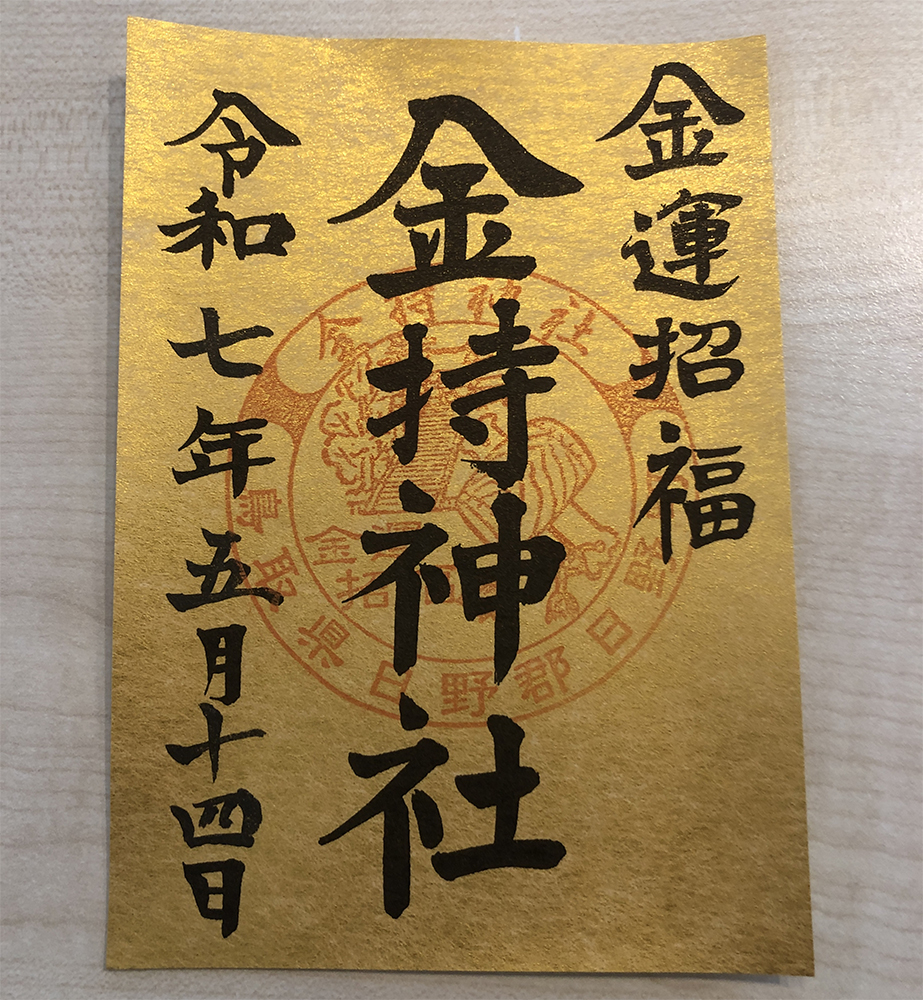 金運招福
金持神社
令和七年五月十四日
金持神社
鳥取県日野郡日野
金運
招